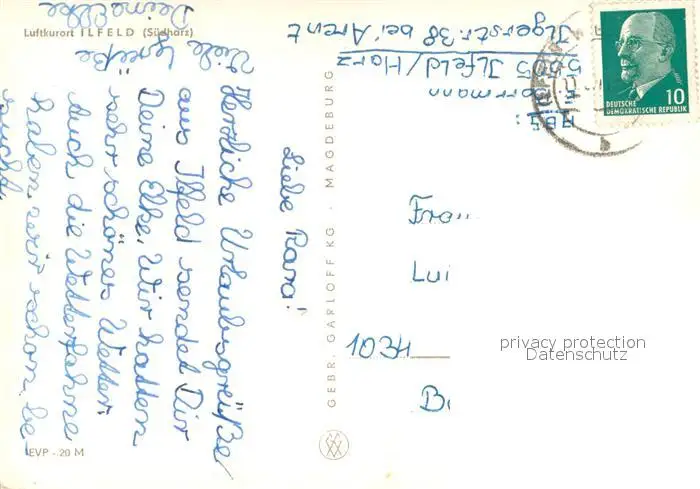 Luftkurort ILFELD (Südharz)
Liebe Rana!
Herzliche Urlaubsgrüße
aus Ilfeld sendet Dir
Deine Elke. Wir hatten
sehr schönes Wetter.
Auch die Wetterfahne
haben wir schon be-
sucht.
Viele Grüße
Deine Elke
EVP - 20 M
GEBR. GARLOFF KG · MAGDEBURG
Abs:
5505 Ilfeld/Harz
Ilgerstr. 38 bei Arent
DEUTSCHE
DEMOKRATISCHE REPUBLIK
10
Frau
Lui
1034
B
privacy protection
Datenschutz